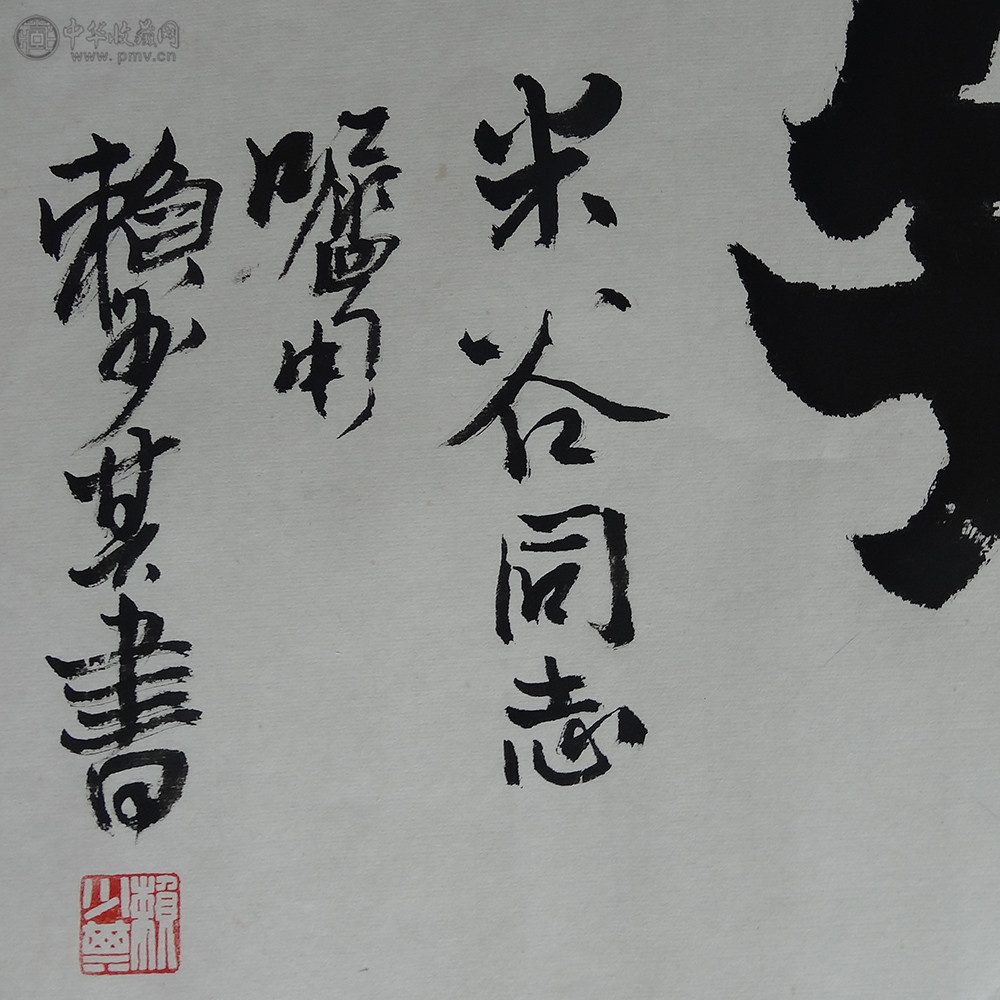 米谷同志
嘱用
赖少其書
赖少其
中华收藏网
www.pmv.cn